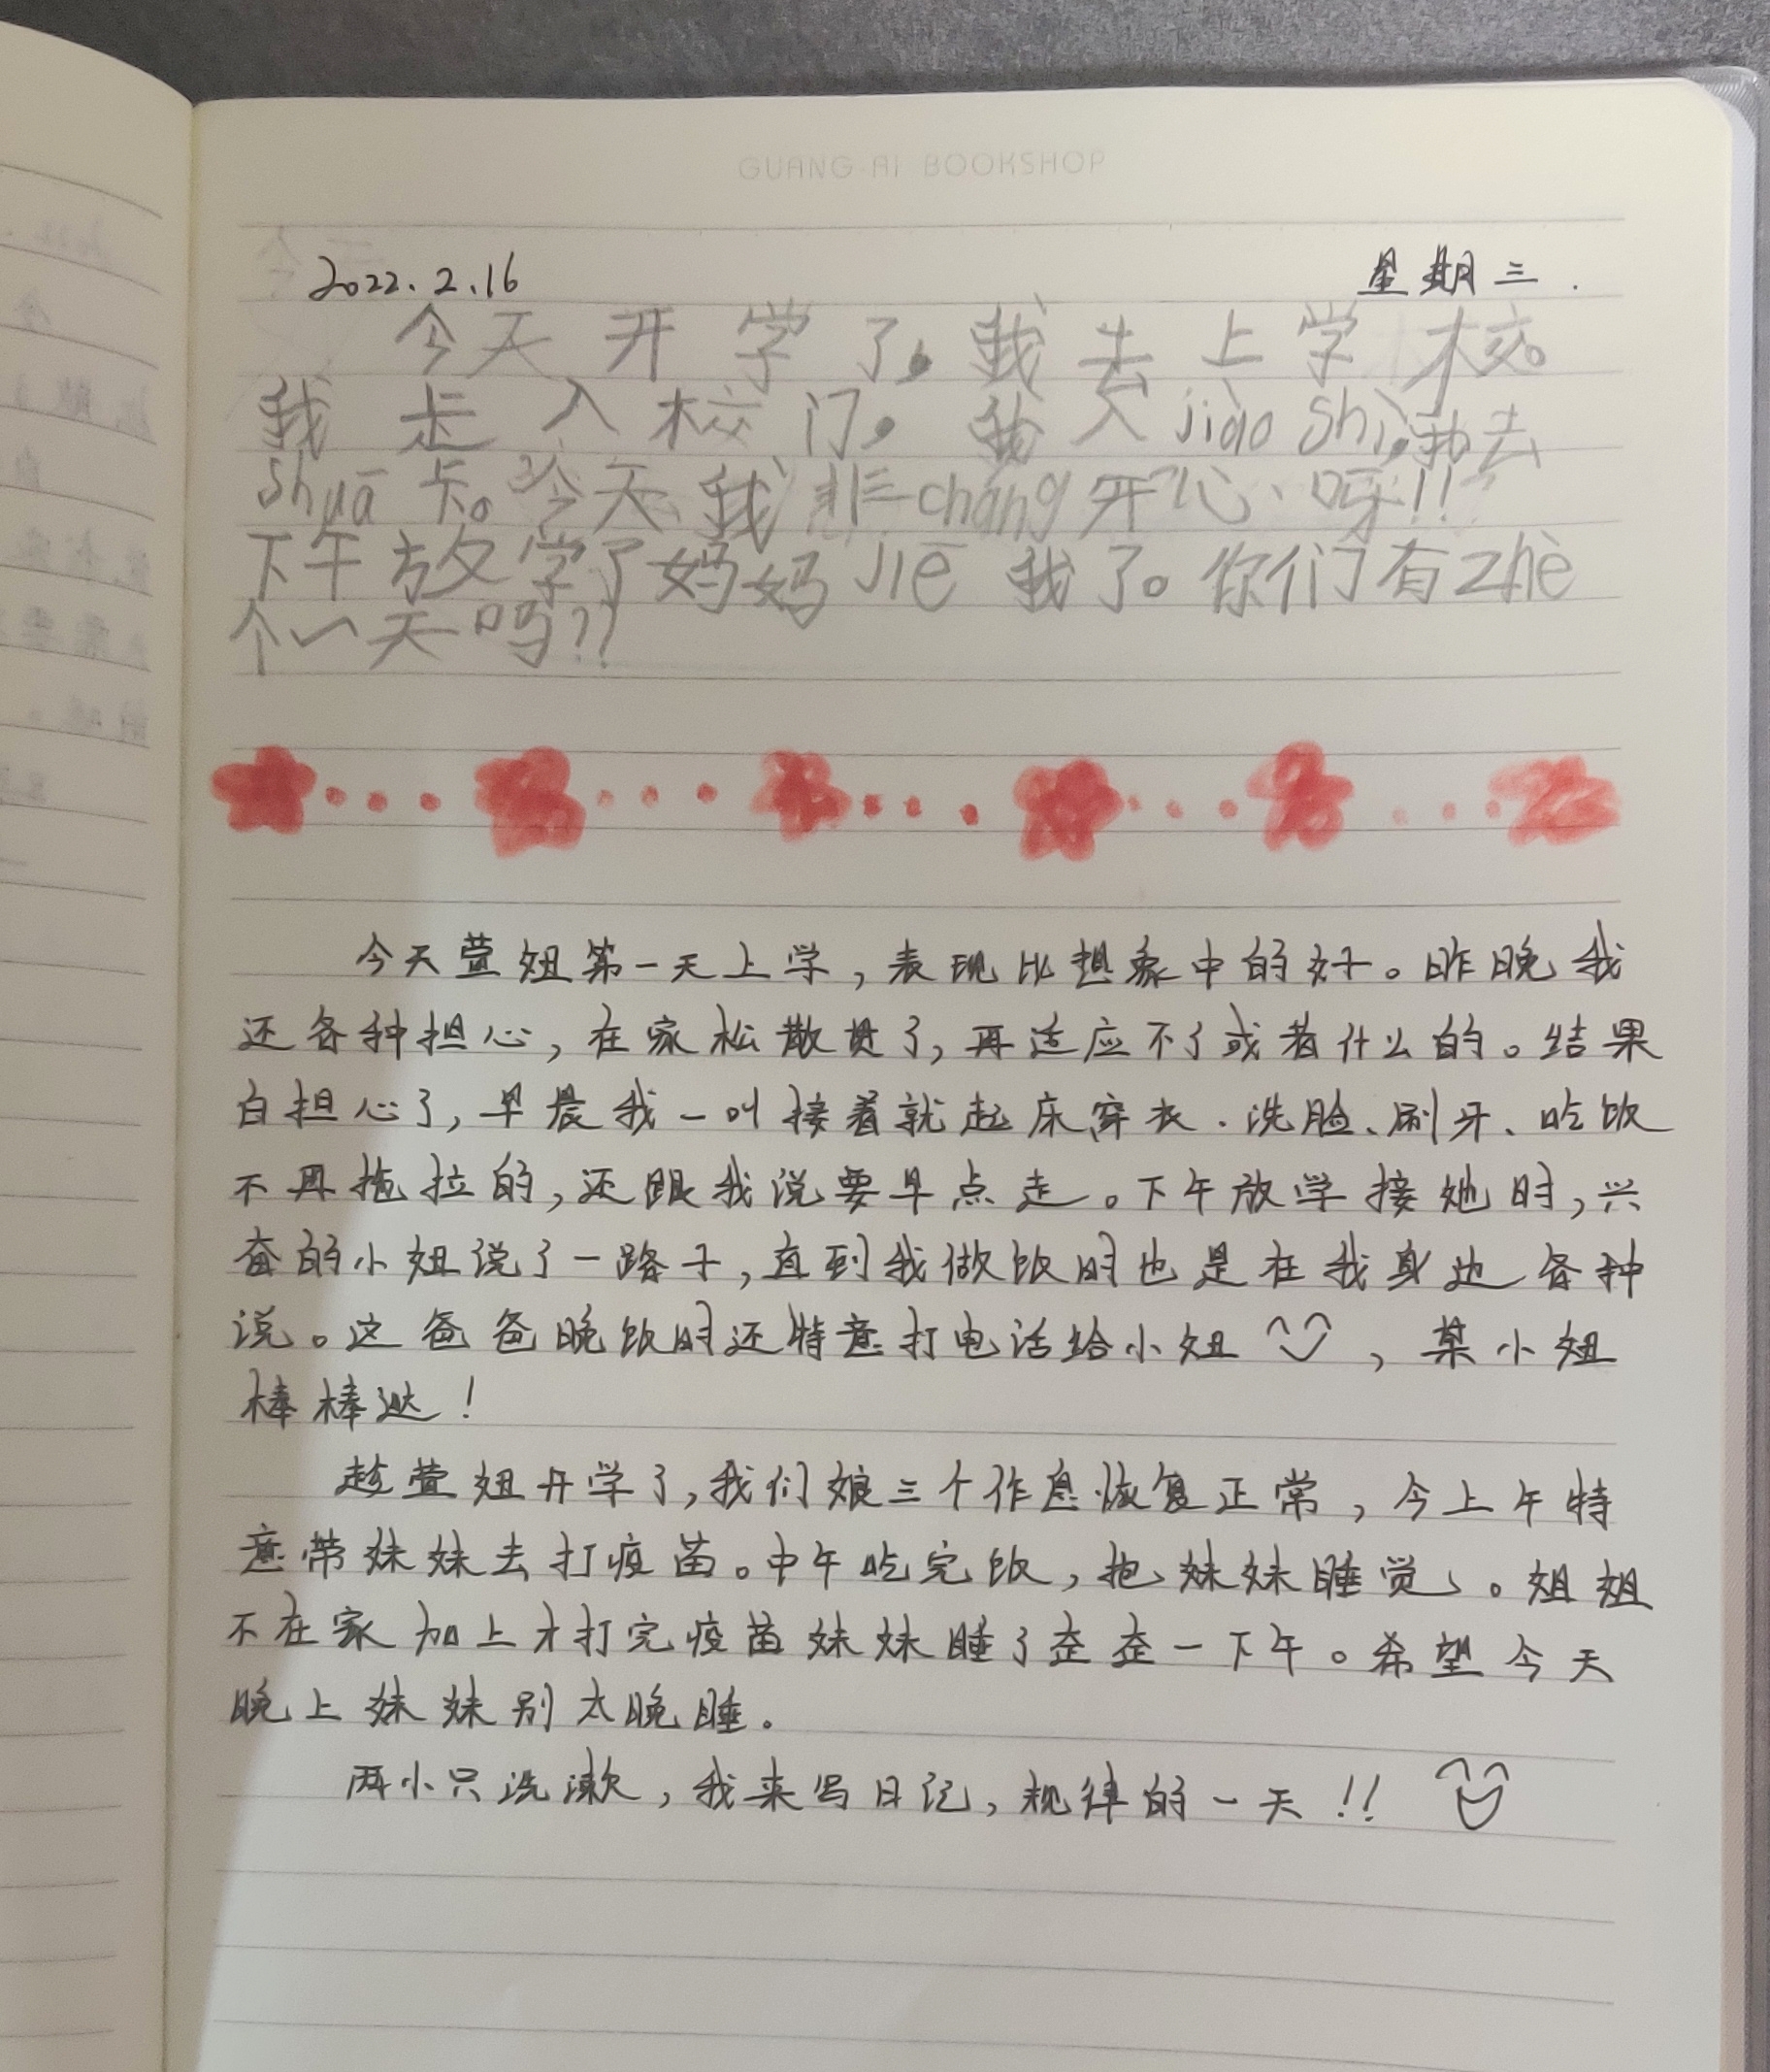 GUANG AI BOOKSHOP
2022.2.16 星期三.
今天开学了,我去上学校。
我走入校门,我入jiào shì,我去
shuā卡。今天我非cháng开心呀!!
下午放学了妈妈jiē我了。你们有zhè
个一天吗??
今天萱妞第一天上学,表现比想象中的好。昨晚我
还各种担心,在家松散惯了,再适应不了或者什么的。结果
白担心了,早晨我一叫接着就起床穿衣.洗脸、刷牙、吃饭
不再拖拉的,还跟我说要早点走。下午放学接她时,兴
奋的小妞说了一路子,直到我做饭时也是在我身边各种
说。这爸爸晚饭时还特意打电话给小妞,某小妞
棒棒哒!
趁萱妞开学了,我们娘三个作息恢复正常,今上午特
意带妹妹去打疫苗。中午吃完饭,抱妹妹睡觉。姐姐
不在家加上才打完疫苗妹妹睡了歪歪一下午。希望今天
晚上妹妹别太晚睡。
两小只洗漱,我来写日记,规律的一天!!